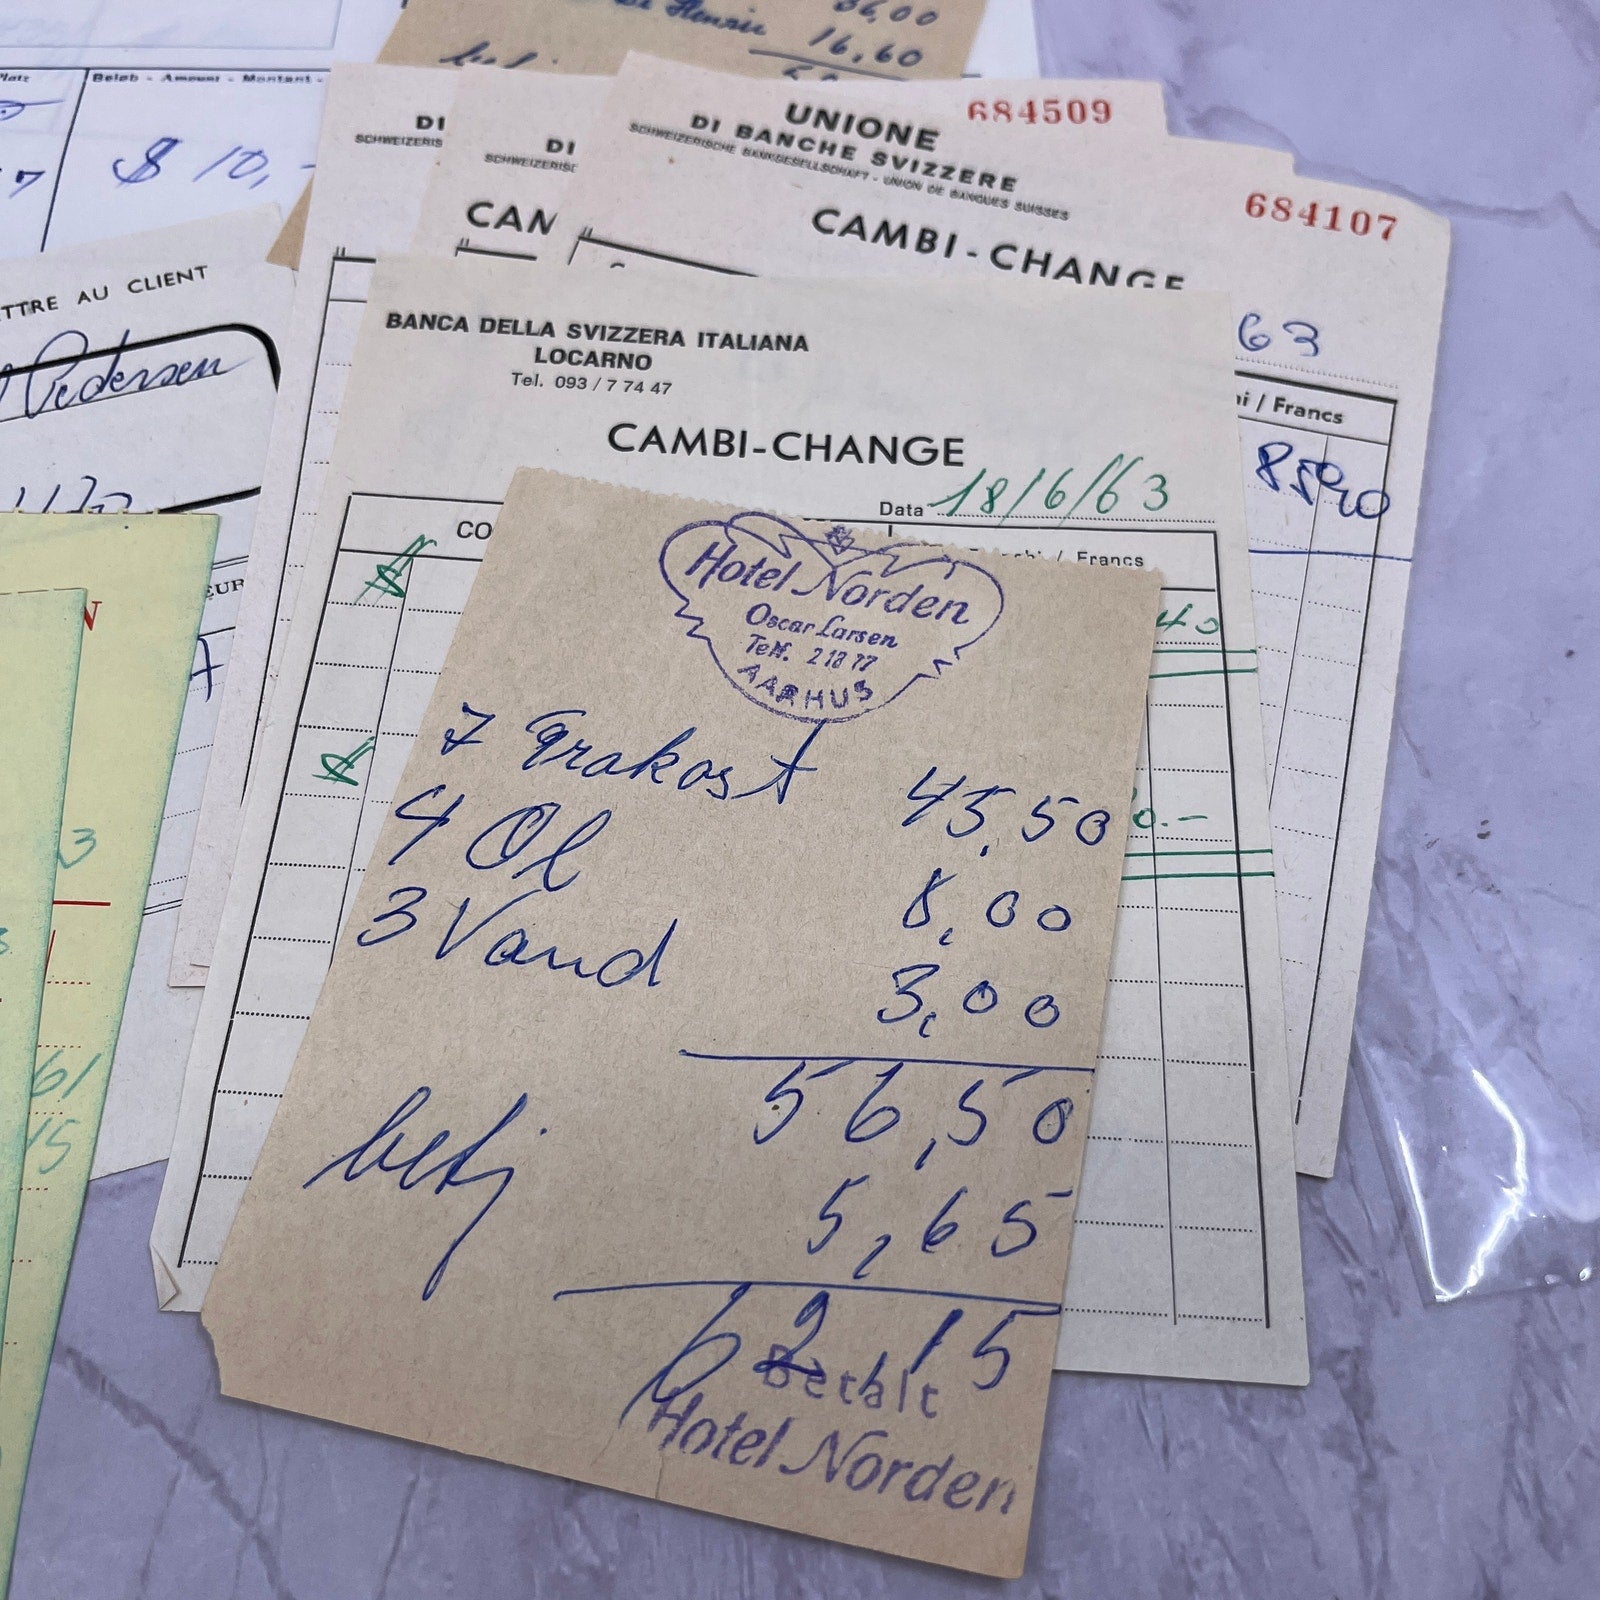 16,60
Beløb - Amount - Montant -
$ 10,-
AU CLIENT
Pedersen
DI
DI
CAN
UNIONE
684509
DI BANCHE SVIZZERE
SCHWEIZERISCHE BANKGESELLSCHAFT - UNION DE BANQUES SUISSES
CAMBI - CHANGE
684107
63
/ Francs
BANCA DELLA SVIZZERA ITALIANA
LOCARNO
Tel. 093 / 7 74 47
CAMBI-CHANGE
Data 18/6/63
CO
/ Francs
$
40
$
0.-
Hotel Norden
Oscar Larsen
Telf. 21877
AARHUS
7 Frokost 45,50
4 Øl 8,00
3 Vand 3,00
56,50
betj 5,65
62,15
Betalt
Hotel Norden
3
61
15